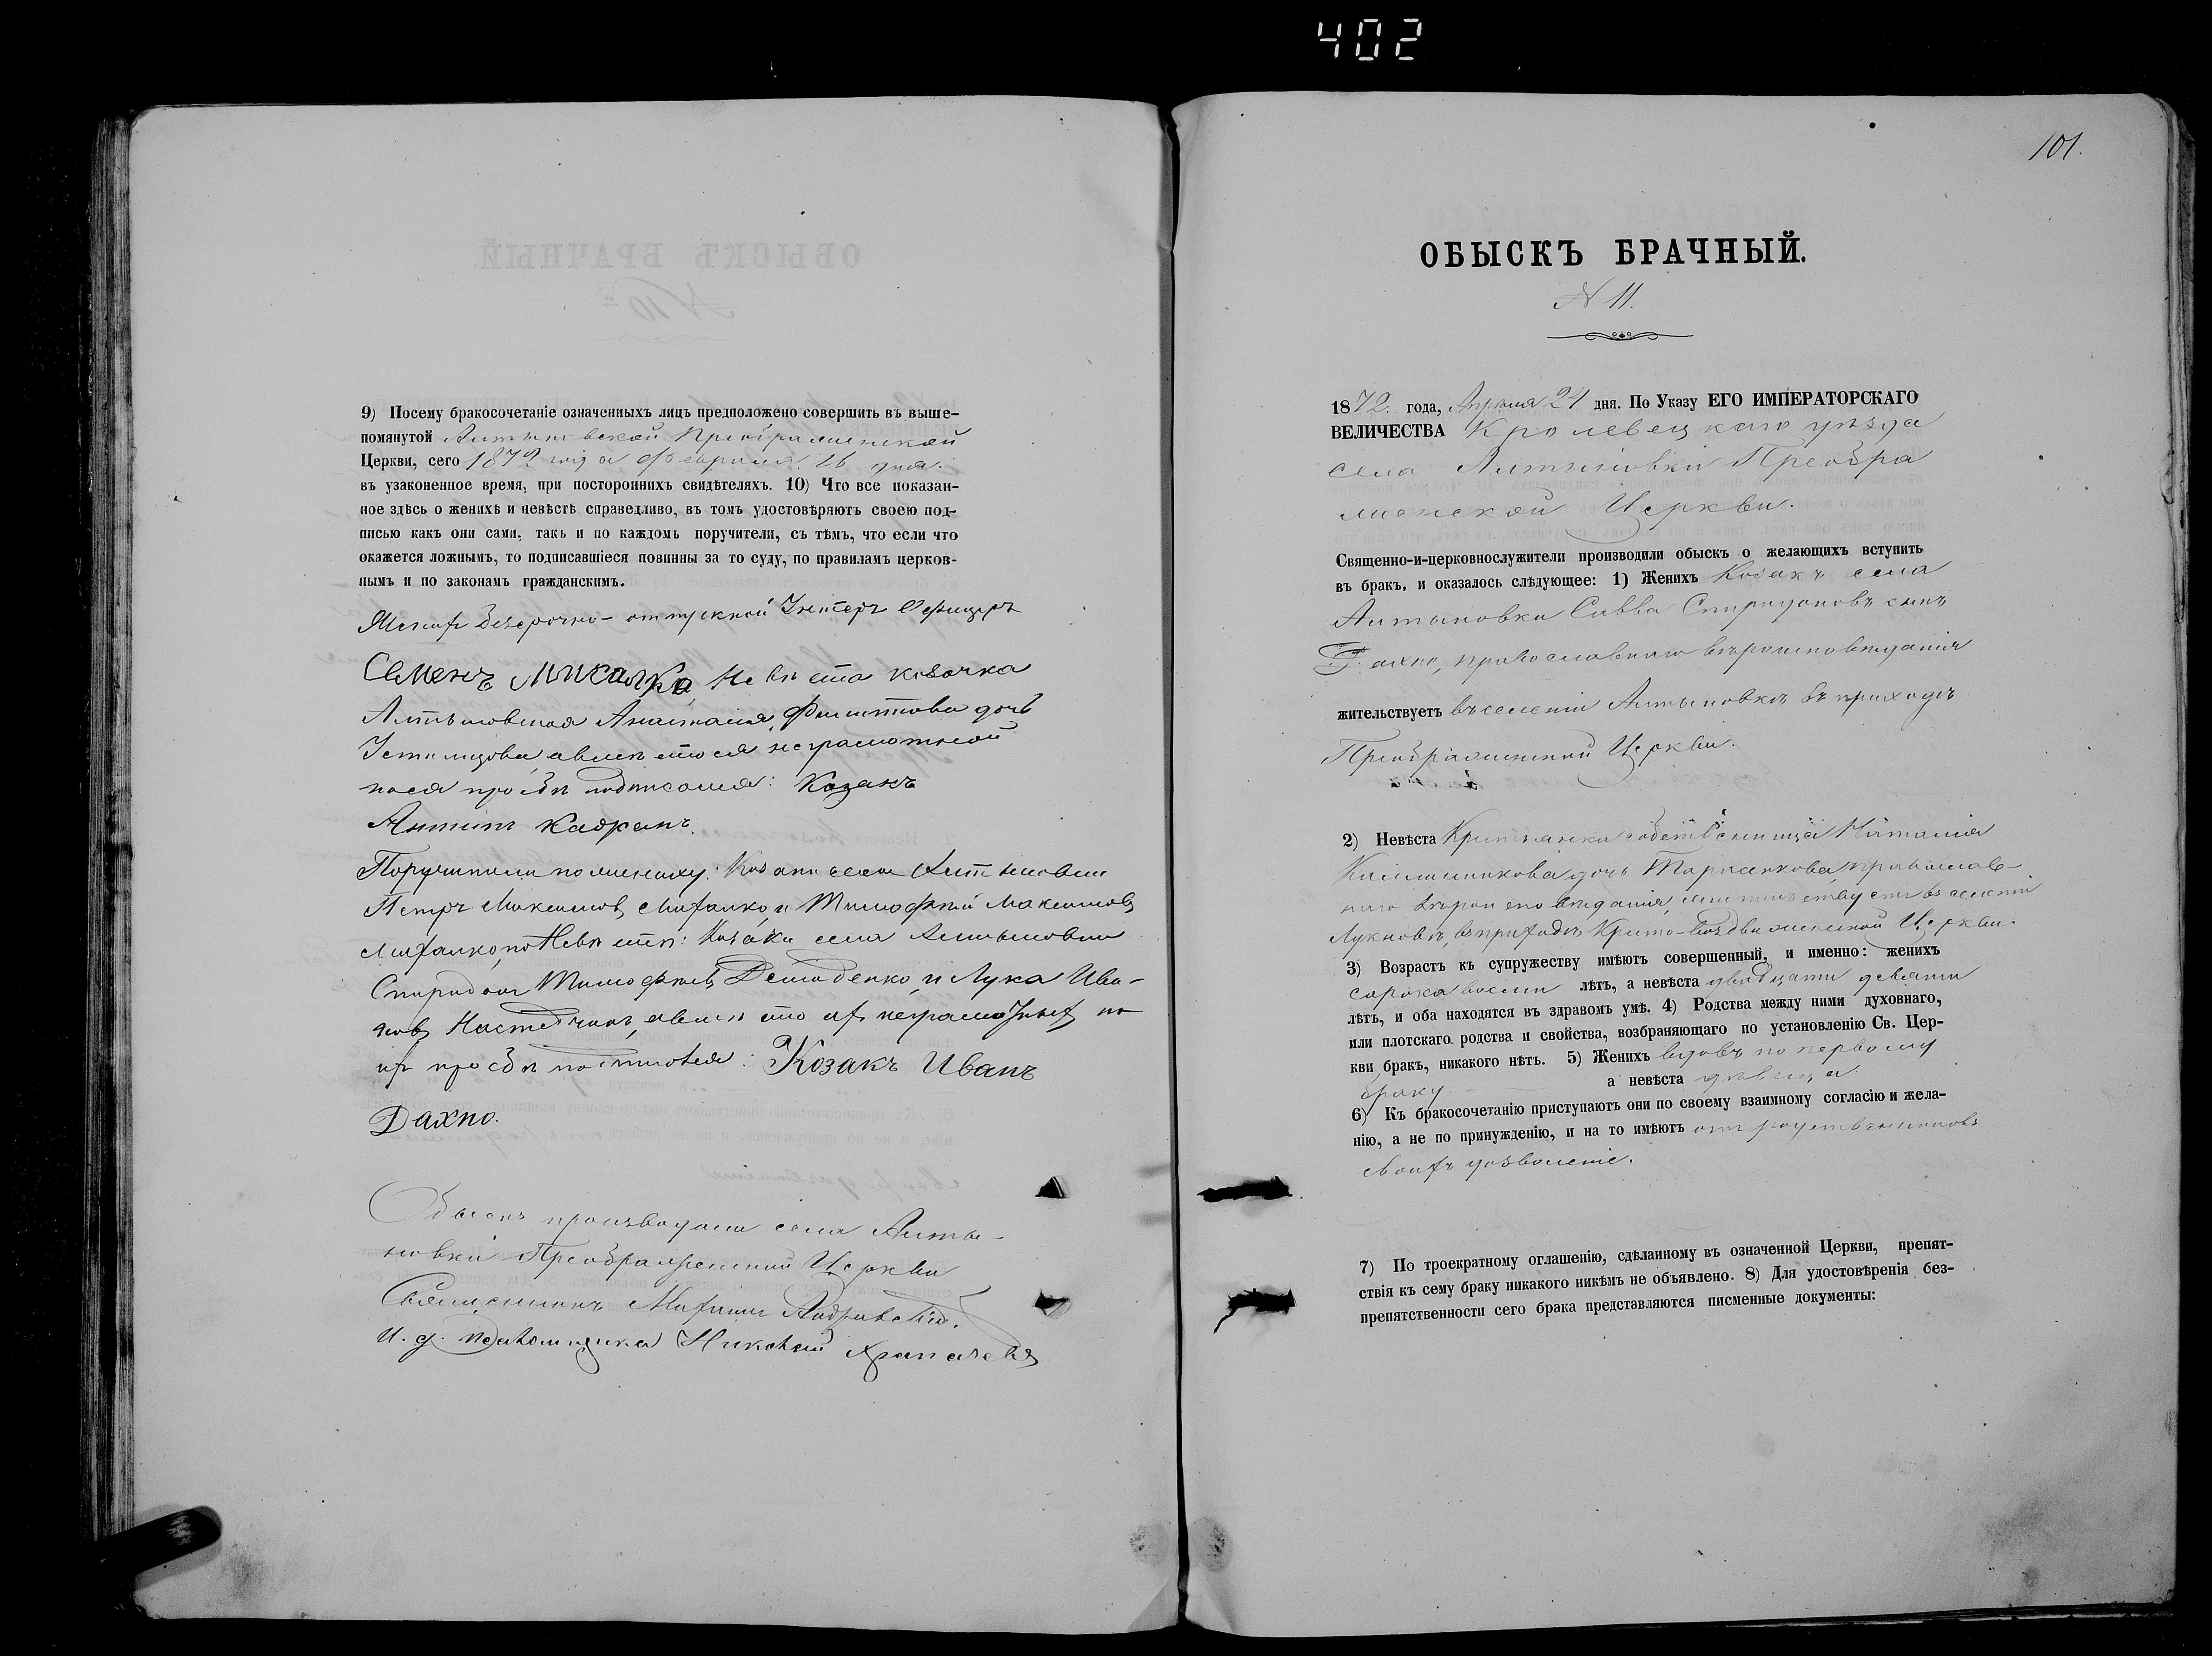 402
9) Посему бракосочетаніе означенныхъ лицъ предположено совершить въ выше-
помянутой Алтыновской Преображенской
Церкви, сего 1872 года Февраля 16 дня.
въ узаконенное время, при постороннихъ свидѣтеляхъ. 10) Что все показан-
ное здѣсь о женихѣ и невѣстѣ справедливо, въ томъ удостовѣряютъ своею под-
писью какъ они сами, такъ и по каждомъ поручители, съ тѣмъ, что если что
окажется ложнымъ, то подписавшіеся повинны за то суду, по правиламъ церков-
нымъ и по законамъ гражданскимъ.
Женихъ безсрочно-отпускной Унтеръ Офицеръ
Семенъ Невѣста козачка
Алтыновская Анастасія Филиппова дочь
Устимцова, а вмѣсто ея неграмотной
по ея прозьбѣ подписался: Козакъ
Антипъ
Поручители по жениху: Козаки села Алтыновки
Петръ Максимовъ Михалко, и Тимофей Максимовъ
Михалко, по Невѣстѣ: Козаки села Алтыновки
Спиридонъ Тимофѣевъ Демиденко, и Лука Ива-
новъ а вмѣсто ихъ неграмотныхъ по
ихъ прозьбѣ Козакъ Иванъ
Дахно.
Обыскъ производили села Алты-
новки Преображенской Церкви
Священникъ Андріевскій.
И. д. псаломщика Николай
101.
ОБЫСКЪ БРАЧНЫЙ.
N 11.
1872. года, Апрѣля 21 дня. По Указу ЕГО ИМПЕРАТОРСКАГО
ВЕЛИЧЕСТВА Кролевецкаго уѣзда
села Алтыновки Преобра
женской Церкви.
Священно-и-церковнослужители производили обыскъ о желающихъ вступить
въ бракъ, и оказалось слѣдующее: 1) Женихъ Козакъ села
Алтыновки Савва Спиридоновъ сынъ
православнаго вѣроисповѣданія
жительствуетъ въ селеніи Алтыновкѣ въ приходѣ
Преображенской Церкви.
2) Невѣста Крестьянка собственница Наталія
Калинникова дочь православ-
наго вѣроисповѣданія, жительствуетъ въ селеніи
Лукновѣ, въ приходѣ Кресто-Воздвиженской Церкви.
3) Возрастъ къ супружеству имѣютъ совершенный, и именно: женихъ
сорока восьми лѣтъ, а невѣста двадцати девяти
лѣтъ, и оба находятся въ здравомъ умѣ. 4) Родства между ними духовнаго,
или плотскаго родства и свойства, возбраняющаго по установленію Св. Цер-
кви бракъ, никакого нѣтъ. 5) Женихъ вдовъ по первому
браку а невѣста дѣвица.
6) Къ бракосочетанію приступаютъ они по своему взаимному согласію и жела-
нію, а не по принужденію, и на то имѣютъ отъ родственниковъ
своихъ дозволеніе.
7) По троекратному оглашенію, сдѣланному въ означенной Церкви, препят-
ствія къ сему браку никакого никѣмъ не объявлено. 8) Для удостовѣренія без-
препятственности сего брака представляются писменные документы: